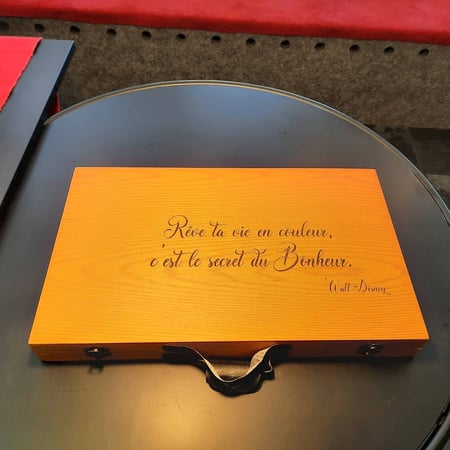 Rêve ta vie en couleur,
c'est le secret du Bonheur.
Walt-Disney